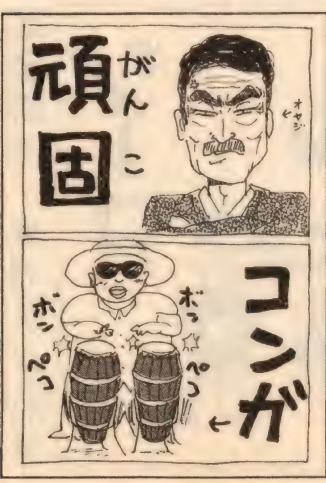 頑固
がんこ
オヤジ
コンガ
ボン
ペコ
ボン
ペコ